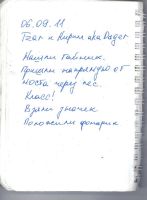 06.09.11
Тзаг и Кирил aka Dager
Нашли тайник.
Пришли напрямую от
моста через лес.
Класс!
Взяли значек
Положили фонарик